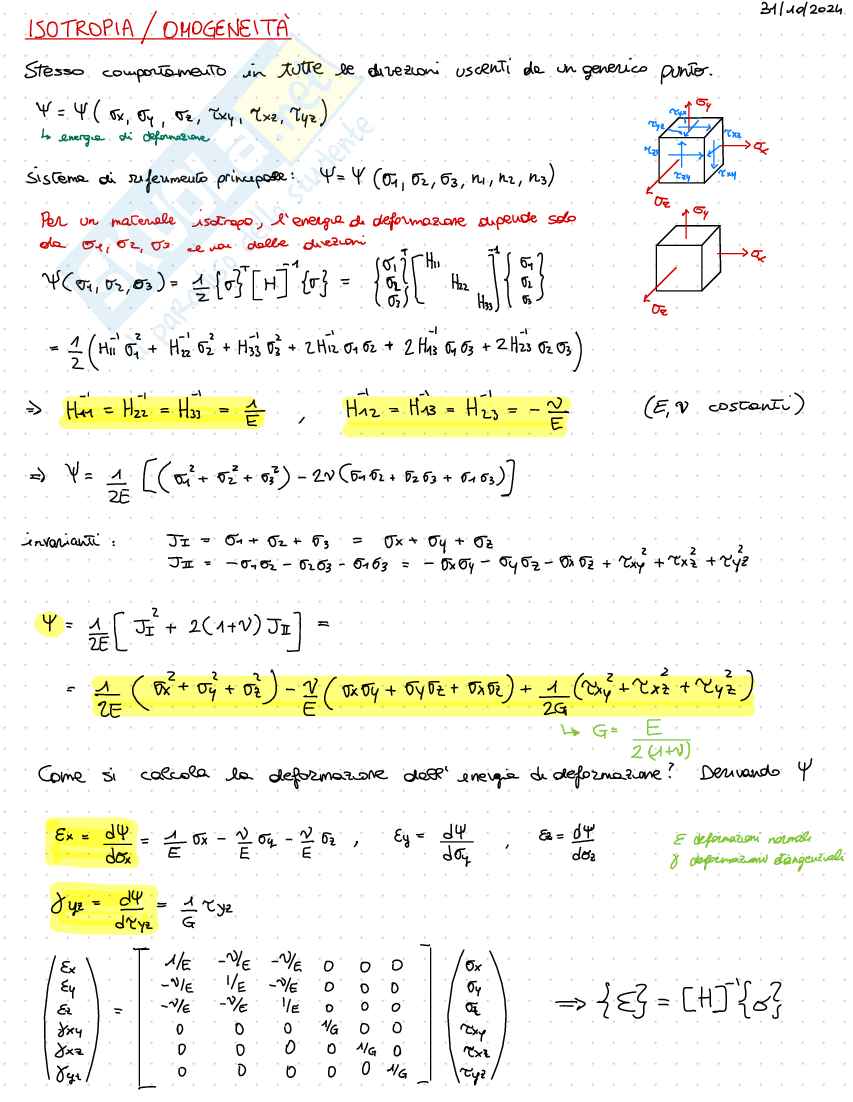 31/10/2024
ISOTROPIA / OMOGENEITÀ
Stesso comportamento in tutte le direzioni uscenti da un generico punto.
Ψ = Ψ ( σx, σy, σz, τxy, τxz, τyz )
↳ energia di deformazione
Sistema di riferimento principale: Ψ = Ψ (σ1, σ2, σ3, n1, n2, n3)
Per un materiale isotropo, l'energia di deformazione dipende solo
da σ1, σ2, σ3 e non dalle direzioni
Ψ(σ1, σ2, σ3) = 1/2 {σ}^T [H]^-1 {σ} = {σ1 σ2 σ3}^T [H11 H22 H33]^-1 {σ1 σ2 σ3}
= 1/2 (H11^-1 σ1^2 + H22^-1 σ2^2 + H33^-1 σ3^2 + 2H12^-1 σ1σ2 + 2H13^-1 σ1σ3 + 2H23^-1 σ2σ3)
⇒ H11^-1 = H22^-1 = H33^-1 = 1/E , H12^-1 = H13^-1 = H23^-1 = - ν/E (E, ν costanti)
⇒ Ψ = 1/2E [(σ1^2 + σ2^2 + σ3^2) - 2ν(σ1σ2 + σ2σ3 + σ1σ3)]
invarianti: JI = σ1 + σ2 + σ3 = σx + σy + σz
JII = -σ1σ2 - σ2σ3 - σ1σ3 = -σxσy - σyσz - σxσz + τxy^2 + τxz^2 + τyz^2
Ψ = 1/2E [JI^2 + 2(1+ν) JII] =
= 1/2E (σx^2 + σy^2 + σz^2) - ν/E (σxσy + σyσz + σxσz) + 1/2G (τxy^2 + τxz^2 + τyz^2)
↳ G = E/2(1+ν)
Come si calcola la deformazione dall'energia di deformazione? Derivando Ψ
εx = dΨ/dσx = 1/E σx - ν/E σy - ν/E σz , εy = dΨ/dσy , εz = dΨ/dσz
ε deformazioni normali
γ deformazioni tangenziali
γyz = dΨ/dτyz = 1/G τyz
εx 1/E -ν/E -ν/E 0 0 0 σx
εy -ν/E 1/E -ν/E 0 0 0 σy
εz = -ν/E -ν/E 1/E 0 0 0 σz ⇒ {ε} = [H]^-1 {σ}
γxy 0 0 0 1/G 0 0 τxy
γxz 0 0 0 0 1/G 0 τxz
γyz 0 0 0 0 0 1/G τyz